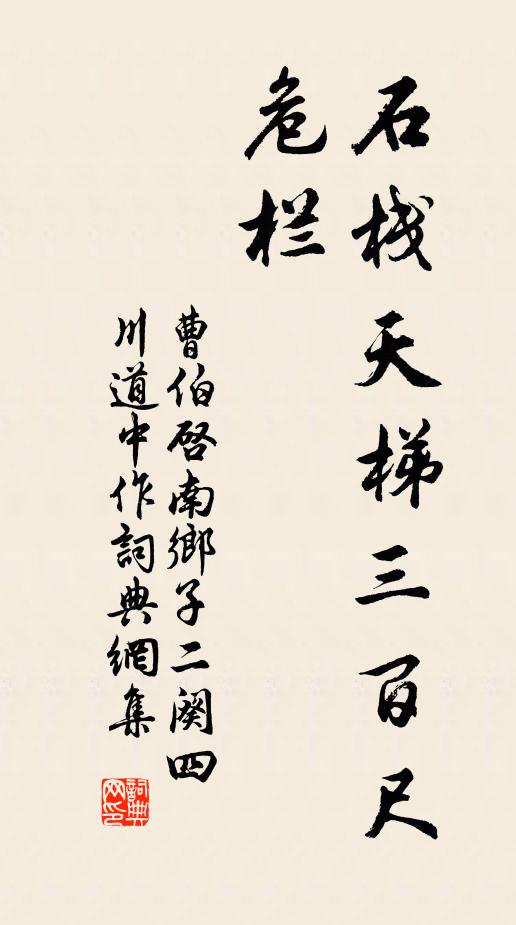 石栈天梯三百尺
危栏
曹伯啓南鄉子二阕四
川道中作詞典網集
詞典网印